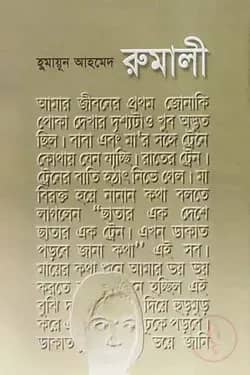 হুমায়ূন আহমেদ রুমালী
আমার জীবনের প্রথম জোনাকি
পোকা দেখার দৃশ্যটাও খুব অদ্ভুত
ছিল। বাবা এবং মা'র সঙ্গে ট্রেনে
কোথায় যেন যাচ্ছি। রাতের ট্রেন।
ট্রেনের বাতি হঠাৎ নিভে গেল। মা
বিরক্ত হয়ে নানান কথা বলতে
লাগলেন "ছাতার এক দেশে
ছাতার এক ট্রেন। এখন ডাকাত
পড়বে জানা কথা" এই সব।
মায়ের কথা শুনে আমার ভয় ভয়
করতে হচ্ছিল এই
বুঝি দিয়ে হুড়মুড়
করে ঢুকে পড়বে।
ডাকাত ভয়ে আমি